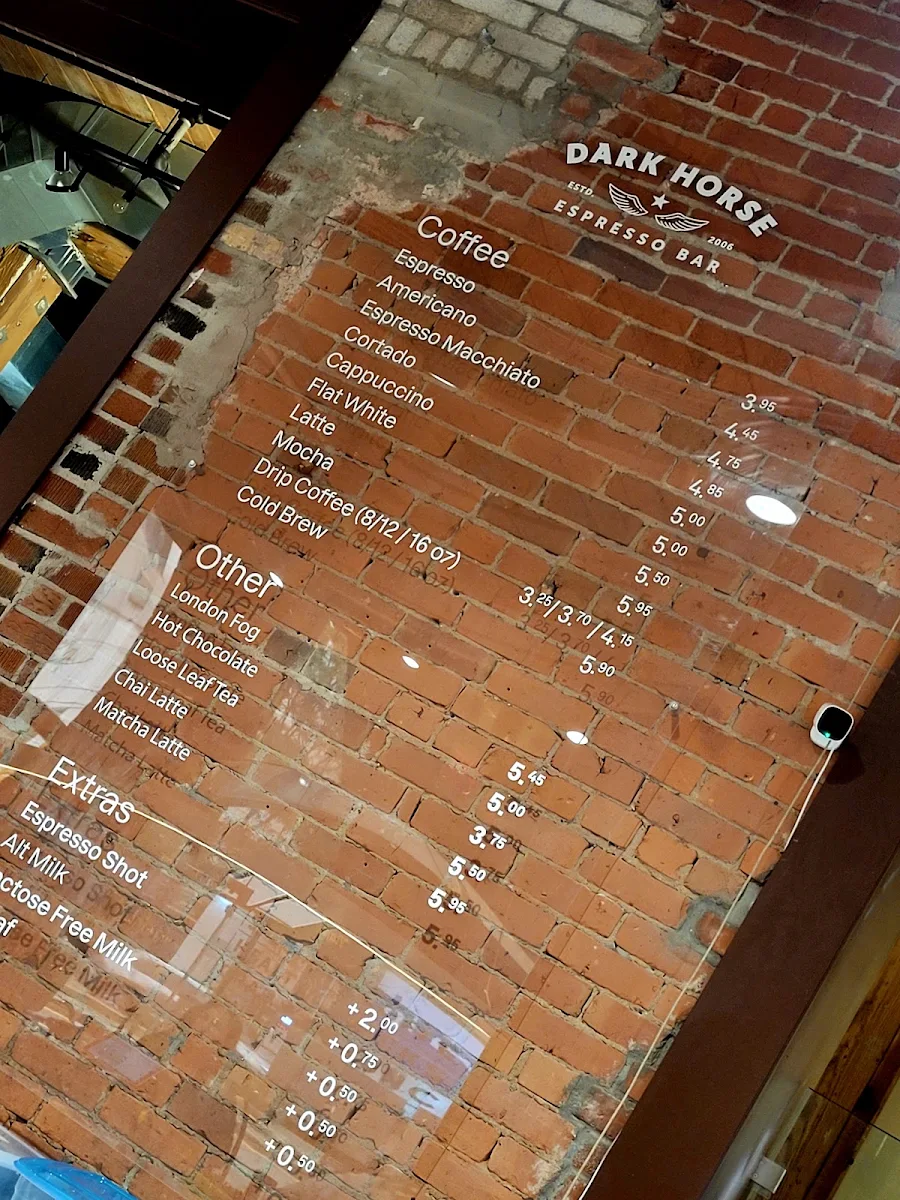 DARK HORSE
ESTD 2006
ESPRESSO BAR
Coffee
Espresso 3.95
Americano 4.45
Espresso Macchiato 4.75
Cortado 4.85
Cappuccino 5.00
Flat White 5.00
Latte 5.50
Mocha 5.95
Drip Coffee (8/12/16 oz) 3.25/3.70/4.15
Cold Brew 5.90
Other
London Fog 5.45
Hot Chocolate 5.00
Loose Leaf Tea 3.75
Chai Latte 5.50
Matcha Latte 5.95
Extras
Espresso Shot +2.00
Alt Milk +0.75
ctose Free Milk +0.50
af +0.50
+0.50